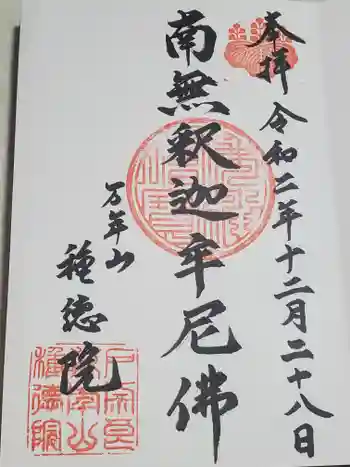 奉拝
令和二年十二月二十八日
南無釈迦牟尼佛
万年山
種徳院